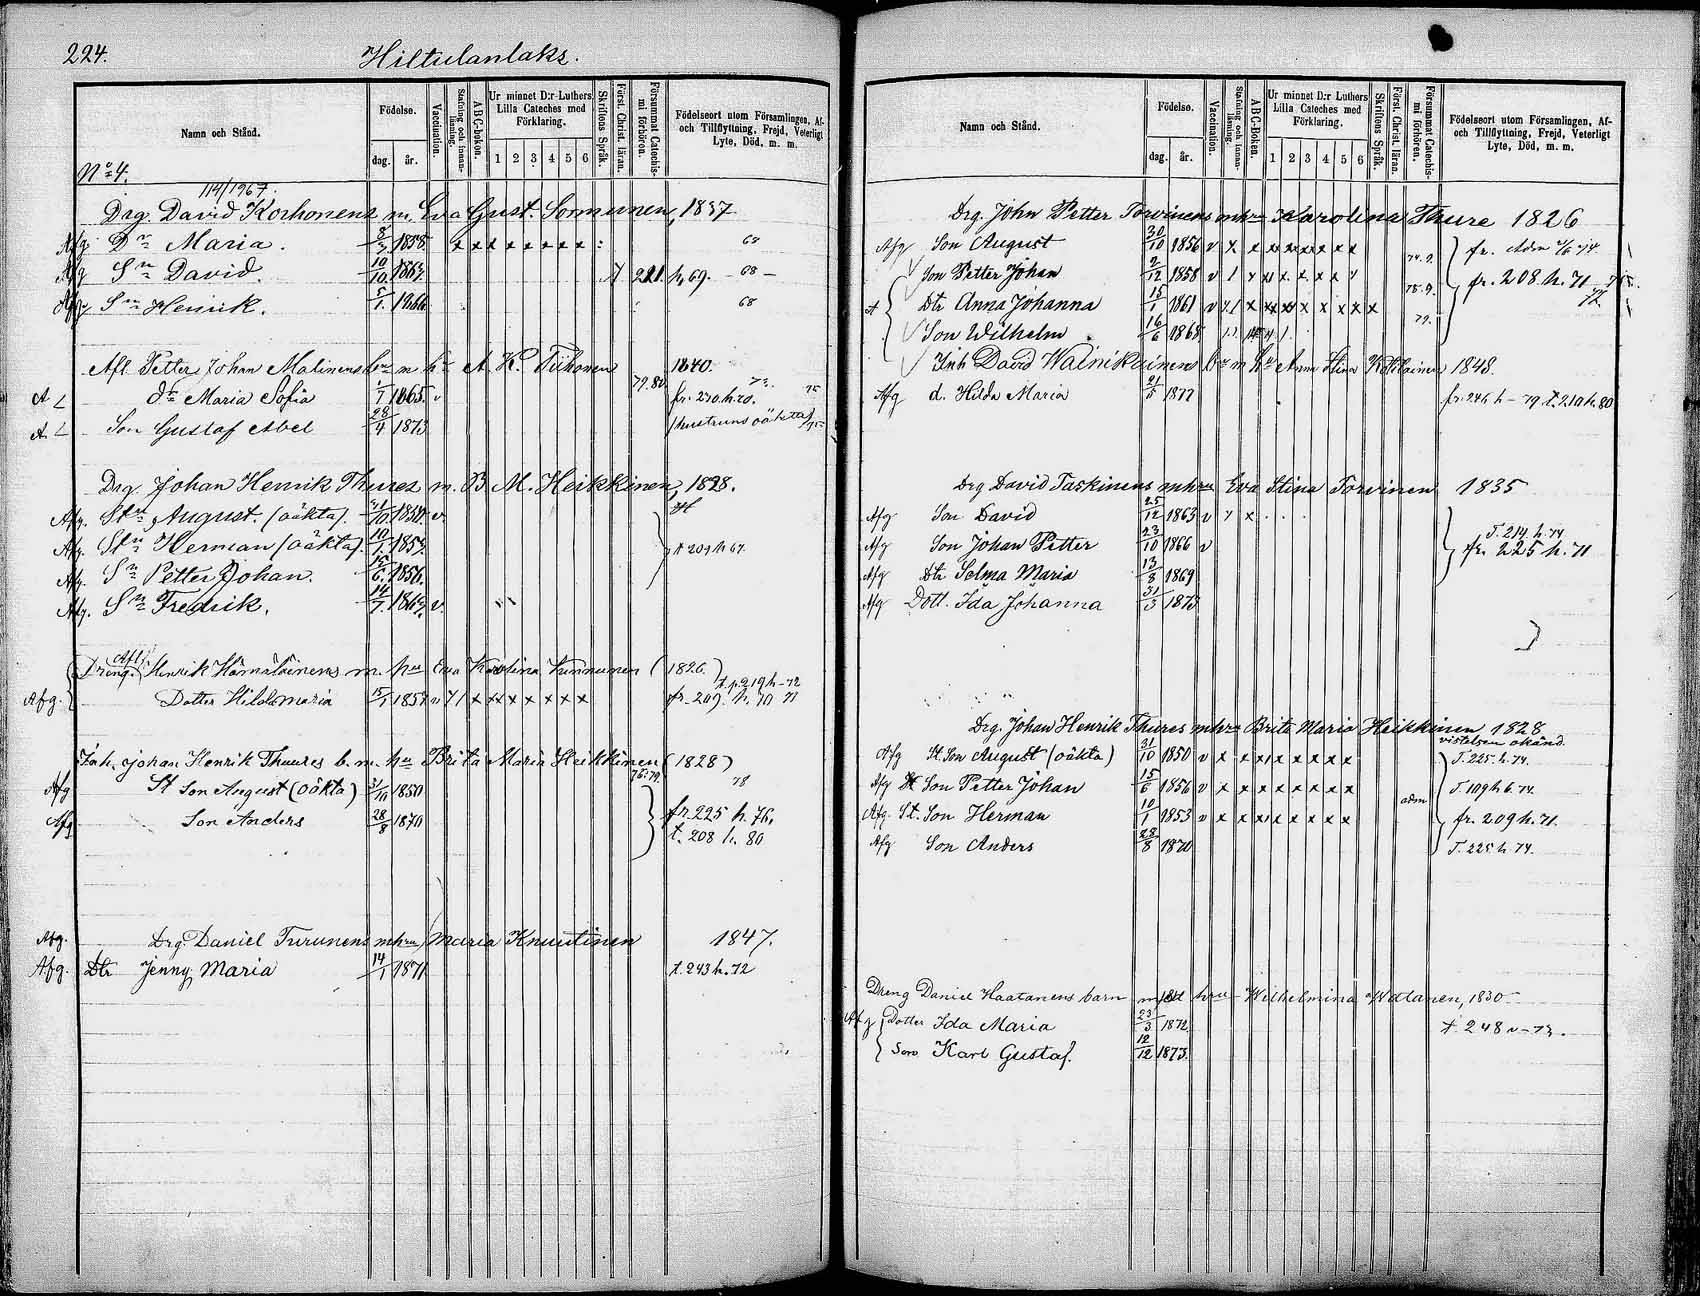 224.
Hiltulanlaks.
Namn och Stånd.
Födelse.
dag. år.
Vaccination.
Stafning och Innanläsning.
A B C-bokon.
Ur minnet D:r Luthers Lilla Cateches med Förklaring.
1 2 3 4 5 6
Skriftens Språk.
Först. Christ. läran.
Försummat Catechismi förhören.
Födelseort utom Församlingen, Af- och Tillflyttning, Frejd, Veterligt Lyte, Död, m. m.
No 4.
114/1967.
Drg. David Korhonens m. Eva Gust. Sormunen, 1837
Afg. Dr Maria. 8/3 1858. x x x x x x x x : 68
Afg Sn David. 10/10 1863. 221. h. 69. - 68 -
Afg Sn Henrik. 5/1 1866. 68
Afl. Petter Johan Malinens bn m. hu A. K. Tiihonen 1840.
A dr Maria Sofia 1/7 1865. v 79.80 fr. 210 h. 70. 75
A. Son Gustaf Abel 28/4 1873 /hustruns oäkta/ 75
Drg. Johan Henrik Thures m. B. M. Heikkinen, 1828.
Afg. Stn August. (oäkta). 31/10 1850. v.
Afg. Stn Herman (oäkta). 10/1 1853. t 209 h 67.
Afg. Sn Petter Johan. 15/6. 1856.
Afg. Sn Fredrik. 14/7 1862. v.
Afl.
Dreng. Henrik Hämäläinens m. hu Eva Karolina Kinnunen (1826.)
t. p. 219 h - 72
Afg. Dotter Hilda Maria 15/1 1857 v x x x x x x x x fr. 209. h. 70 71
Inh. Johan Henrik Thures b. m. hu Brita Maria Heikkinen (1828)
76.79. 78
Afg St Son August (oäkta) 31/10 1850
Afg Son Anders 28/8 1870 fr. 225 h. 76.
t. 208 h. 80
Afg. Drg. Daniel Turunens m hu Maria Knuutinen 1847.
Afg. Dtr Jenny Maria 14/1 1871 t. 243 h. 72
Namn och Stånd.
Födelse.
dag. år.
Vaccination.
Stafning och Innanläsning.
A B C-Boken.
Ur minnet D:r Luthers Lilla Cateches med Förklaring.
1 2 3 4 5 6
Skriftens Språk.
Först. Christ. läran.
Försummat Catechismi förhören.
Födelseort utom Församlingen, Af- och Tillflyttning, Frejd, Veterligt Lyte, Död, m. m.
Drg. John Petter Torvinens m hru Karolina Thure 1826
Afg Son August 30/10 1856 v x x x x x x x x 74.9. fr.
Son Petter Johan 2/12 1858 v 1 x x x x x x 75.9. fr. 208 h. 71 75.
A Dtr Anna Johanna 15/1 1861 v x 1 x x x x x x x x 79. 72.
Son Wilhelm 16/6 1868
Inh David Walnikainens bn m hu Anna Stina Kettilainen 1848.
Afg d. Hilda Maria 21/5 1877 fr. 246 h - 79 t. 210 h. 80
Drg David Taskinens m hru Eva Stina Torvinen 1835
Afg Son David 25/12 1863 v x
Afg Son Johan Petter 23/10 1866 v T. 214. h. 74
fr. 225 h. 71
Afg Dtr Selma Maria 13/8 1869
Afg Dott. Ida Johanna 31/3 1873
Drg. Johan Henrik Thures m hru Brita Maria Heikkinen 1828
vistelsen okänd.
Afg St. Son August (oäkta) 31/10 1850 v x x x x x x x x T. 225. h. 74.
Afg St Son Petter Johan 15/6 1856 v x x x x x x x x T. 109 h 6. 74.
Afg. St. Son Herman 10/1 1853 v x x x x x x x x adm fr. 209 h. 71.
Afg Son Anders 28/8 1870 T. 225 h. 74.
Dreng Daniel Haatanens barn med hru - Wilhelmina Watanen, 1830
Afg Dotter Ida Maria 23/3 1872 t 248 - 73.
Son Karl Gustaf. 12/12 1873.